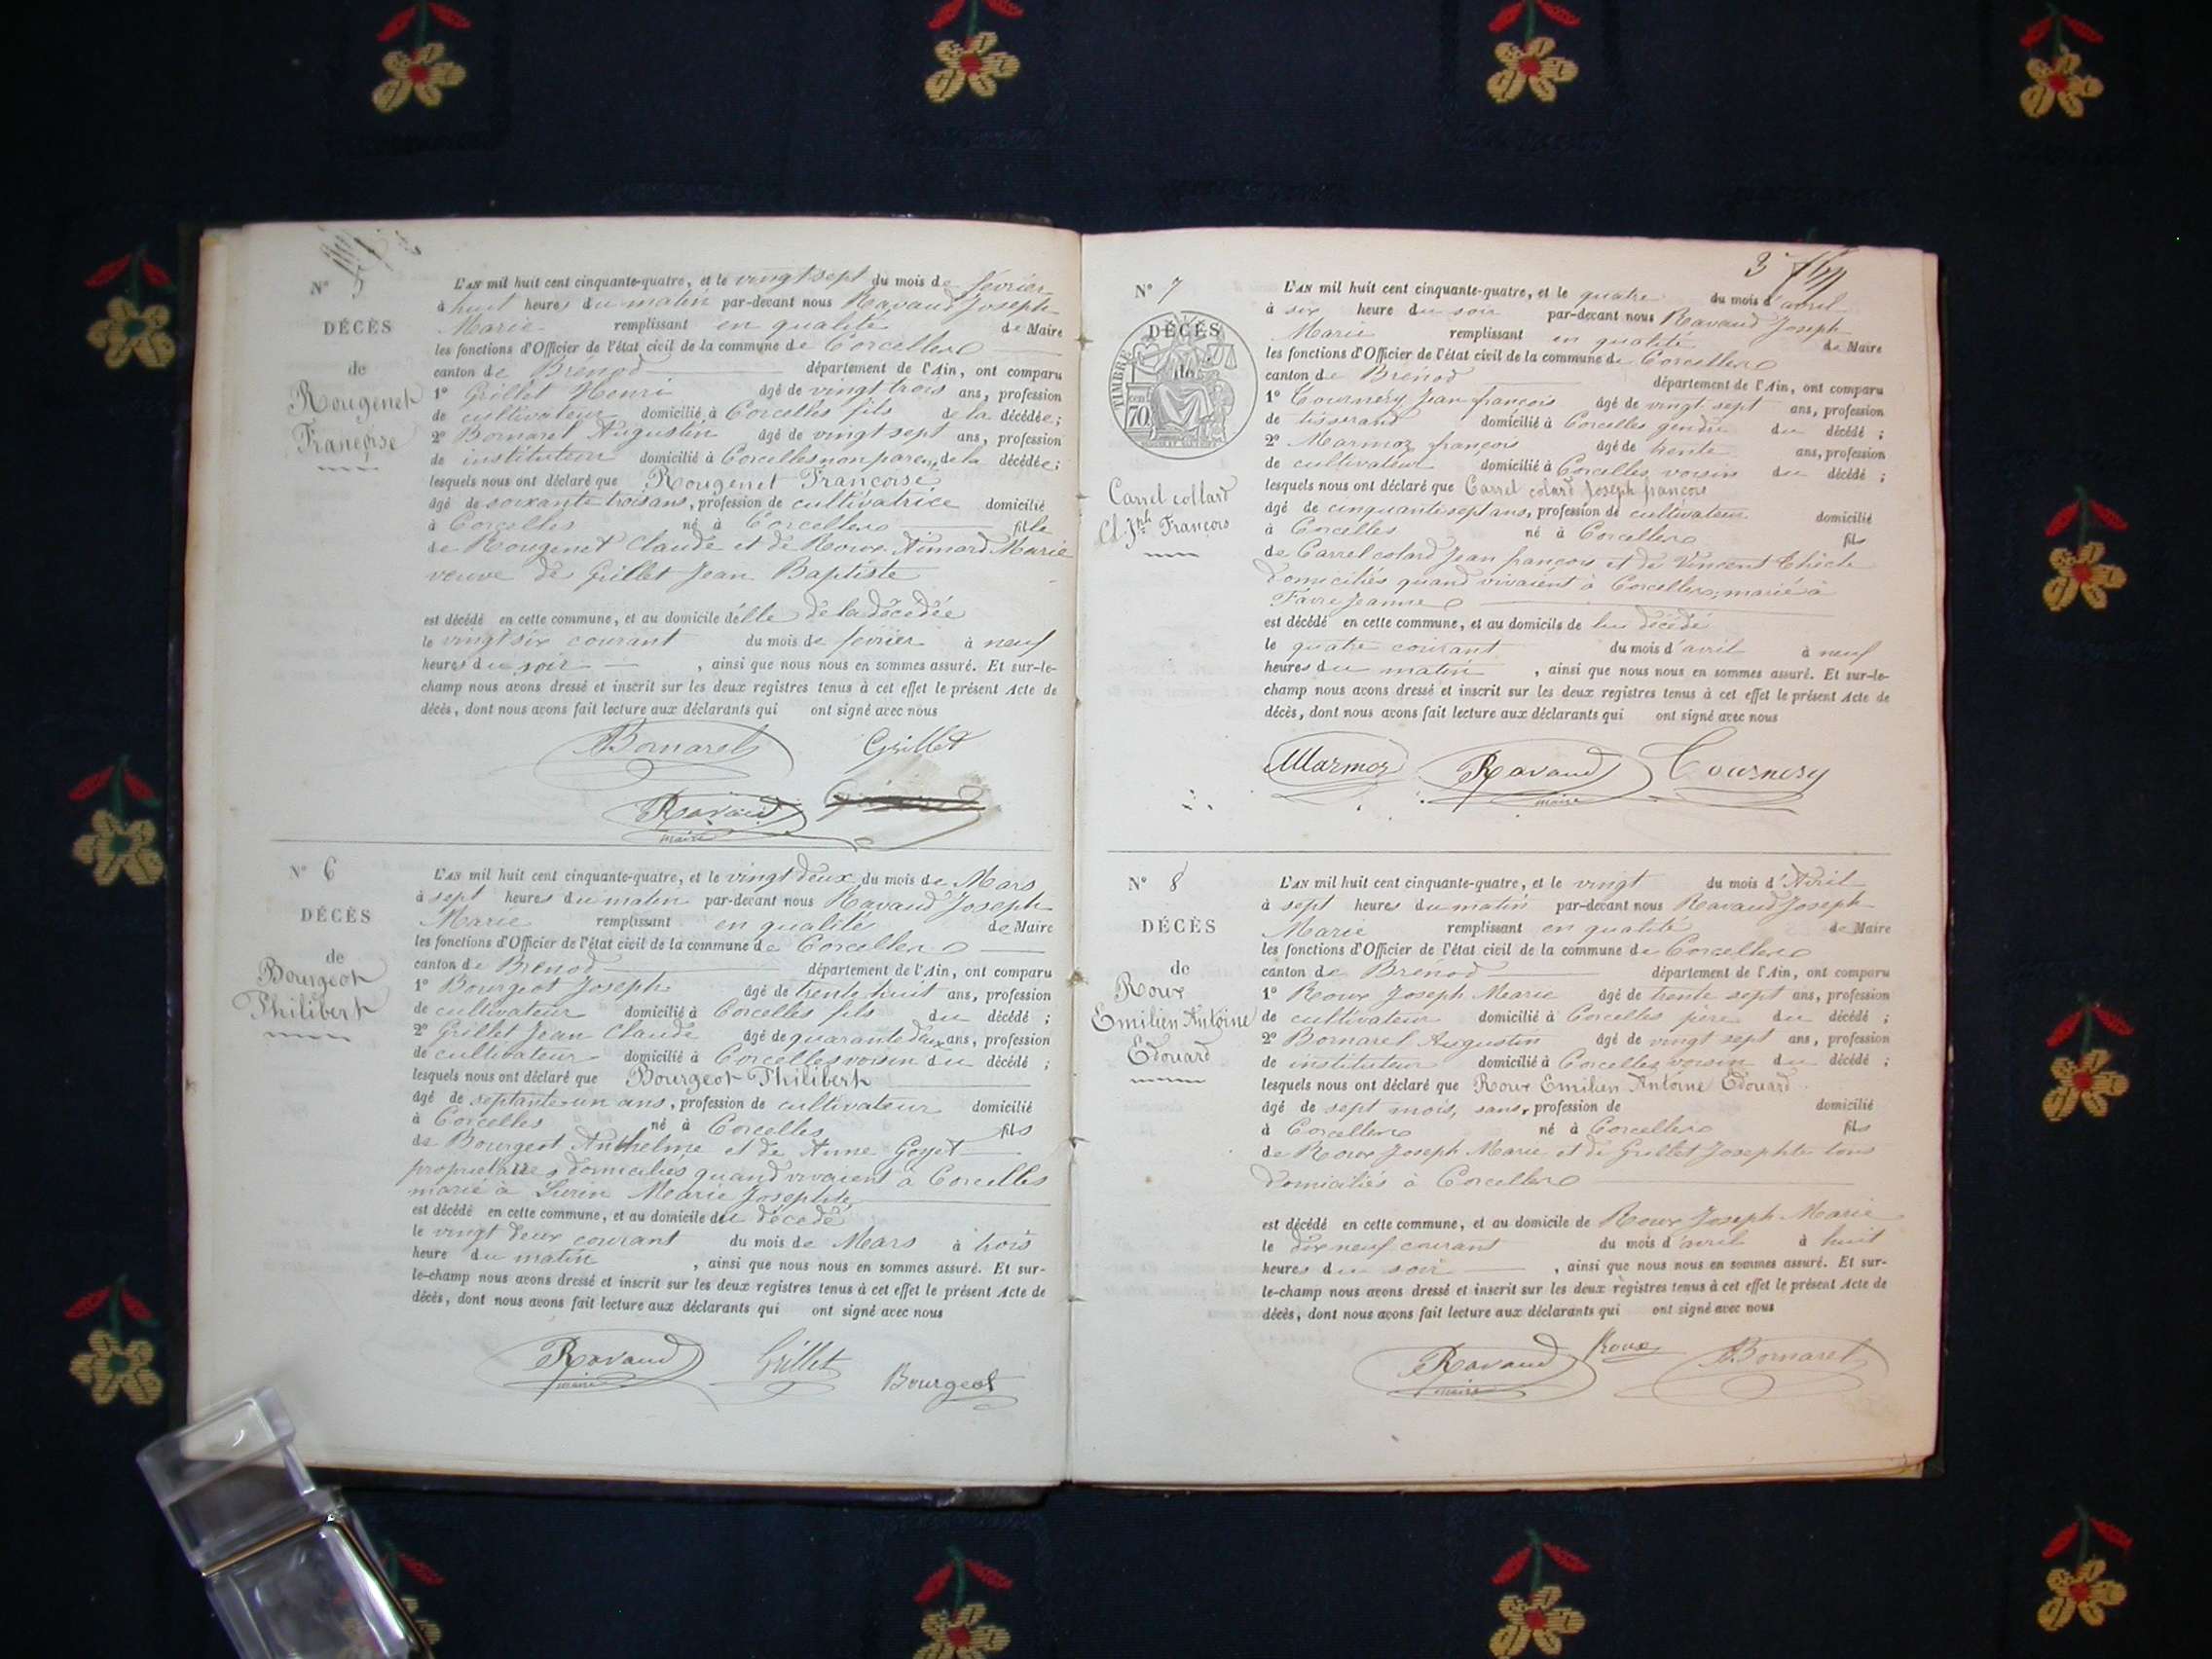 N° 5
DÉCÈS
de
Rougenet
Françoise
L'AN mil huit cent cinquante-quatre, et le vingt sept du mois de février
à huit heures du matin par-devant nous Ravaud Joseph
Marie remplissant en qualité de Maire
les fonctions d'Officier de l'état civil de la commune de Corcelles
canton de Brénod département de l'Ain, ont comparu
1° Grillet Henri âgé de vingt trois ans, profession
de cultivateur domicilié à Corcelles fils de la décédée;
2° Bornarel Augustin âgé de vingt sept ans, profession
de instituteur domicilié à Corcelles non parent de la décédée;
lesquels nous ont déclaré que Rougenet Françoise
âgé de soixante trois ans, profession de cultivatrice domicilié
à Corcelles né à Corcelles fille
de Rougenet Claude et de Roux Aimard Marie
veuve de Grillet Jean Baptiste
est décédé en cette commune, et au domicile d'elle de la décédée
le vingt six courant du mois de février à neuf
heures du soir , ainsi que nous nous en sommes assuré. Et sur-le-
champ nous avons dressé et inscrit sur les deux registres tenus à cet effet le présent Acte de
décès, dont nous avons fait lecture aux déclarants qui ont signé avec nous
Bornarel Grillet
Ravaud
maire
N° 6
DÉCÈS
de
Bourgeot
Philibert
L'AN mil huit cent cinquante-quatre, et le vingt deux du mois de Mars
à sept heures du matin par-devant nous Ravaud Joseph
Marie remplissant en qualité de Maire
les fonctions d'Officier de l'état civil de la commune de Corcelles
canton de Brénod département de l'Ain, ont comparu
1° Bourgeot Joseph âgé de trente huit ans, profession
de cultivateur domicilié à Corcelles fils du décédé ;
2° Grillet Jean Claude âgé de quarante deux ans, profession
de cultivateur domicilié à Corcelles voisin du décédé ;
lesquels nous ont déclaré que Bourgeot Philibert
âgé de septante un ans, profession de cultivateur domicilié
à Corcelles né à Corcelles fils
de Bourgeot Anthelme et de Anne Goyet
propriétaires domiciliés quand vivaient à Corcelles
marié à Marie Josephte
est décédé en cette commune, et au domicile du décédé
le vingt deux courant du mois de Mars à trois
heure du matin , ainsi que nous nous en sommes assuré. Et sur-
le-champ nous avons dressé et inscrit sur les deux registres tenus à cet effet le présent Acte de
décès, dont nous avons fait lecture aux déclarants qui ont signé avec nous
Ravaud Grillet Bourgeot
maire
3
N° 7
DÉCÈS
de
TIMBRE
70
Carrel collard
Cl. Jph François
L'AN mil huit cent cinquante-quatre, et le quatre du mois d'avril
à six heure du soir par-devant nous Ravaud Joseph
Marie remplissant en qualité de Maire
les fonctions d'Officier de l'état civil de la commune de Corcelles
canton de Brénod département de l'Ain, ont comparu
1° Tournery Jean françois âgé de vingt sept ans, profession
de tisserand domicilié à Corcelles gendre du décédé ;
2° Marmoz françois âgé de trente ans, profession
de cultivateur domicilié à Corcelles voisin du décédé ;
lesquels nous ont déclaré que Carrel colard Joseph françois
âgé de cinquante sept ans, profession de cultivateur domicilié
à Corcelles né à Corcelles fils
de Carrel colard Jean françois et de Vincent
domiciliés quand vivaient à Corcelles, marié à
Favre Jeanne
est décédé en cette commune, et au domicile de lui décédé
le quatre courant du mois d'avril à neuf
heures du matin , ainsi que nous nous en sommes assuré. Et sur-le-
champ nous avons dressé et inscrit sur les deux registres tenus à cet effet le présent Acte de
décès, dont nous avons fait lecture aux déclarants qui ont signé avec nous
Marmoz Ravaud Tournery
maire
N° 8
DÉCÈS
de
Roux
Emilien Antoine
Edouard
L'AN mil huit cent cinquante-quatre, et le vingt du mois d'Avril
à sept heures du matin par-devant nous Ravaud Joseph
Marie remplissant en qualité de Maire
les fonctions d'Officier de l'état civil de la commune de Corcelles
canton de Brénod département de l'Ain, ont comparu
1° Roux Joseph Marie âgé de trente sept ans, profession
de cultivateur domicilié à Corcelles père du décédé ;
2° Bornarel Augustin âgé de vingt sept ans, profession
de instituteur domicilié à Corcelles voisin du décédé ;
lesquels nous ont déclaré que Roux Emilien Antoine Edouard
âgé de sept mois, sans, profession de domicilié
à Corcelles né à Corcelles fils
de Roux Joseph Marie et de Grillet Josephte tous
domiciliés à Corcelles
est décédé en cette commune, et au domicile de Roux Joseph Marie
le dix neuf courant du mois d'avril à huit
heures du soir , ainsi que nous nous en sommes assuré. Et sur-
le-champ nous avons dressé et inscrit sur les deux registres tenus à cet effet le présent Acte de
décès, dont nous avons fait lecture aux déclarants qui ont signé avec nous
Ravaud Roux Bornarel
maire